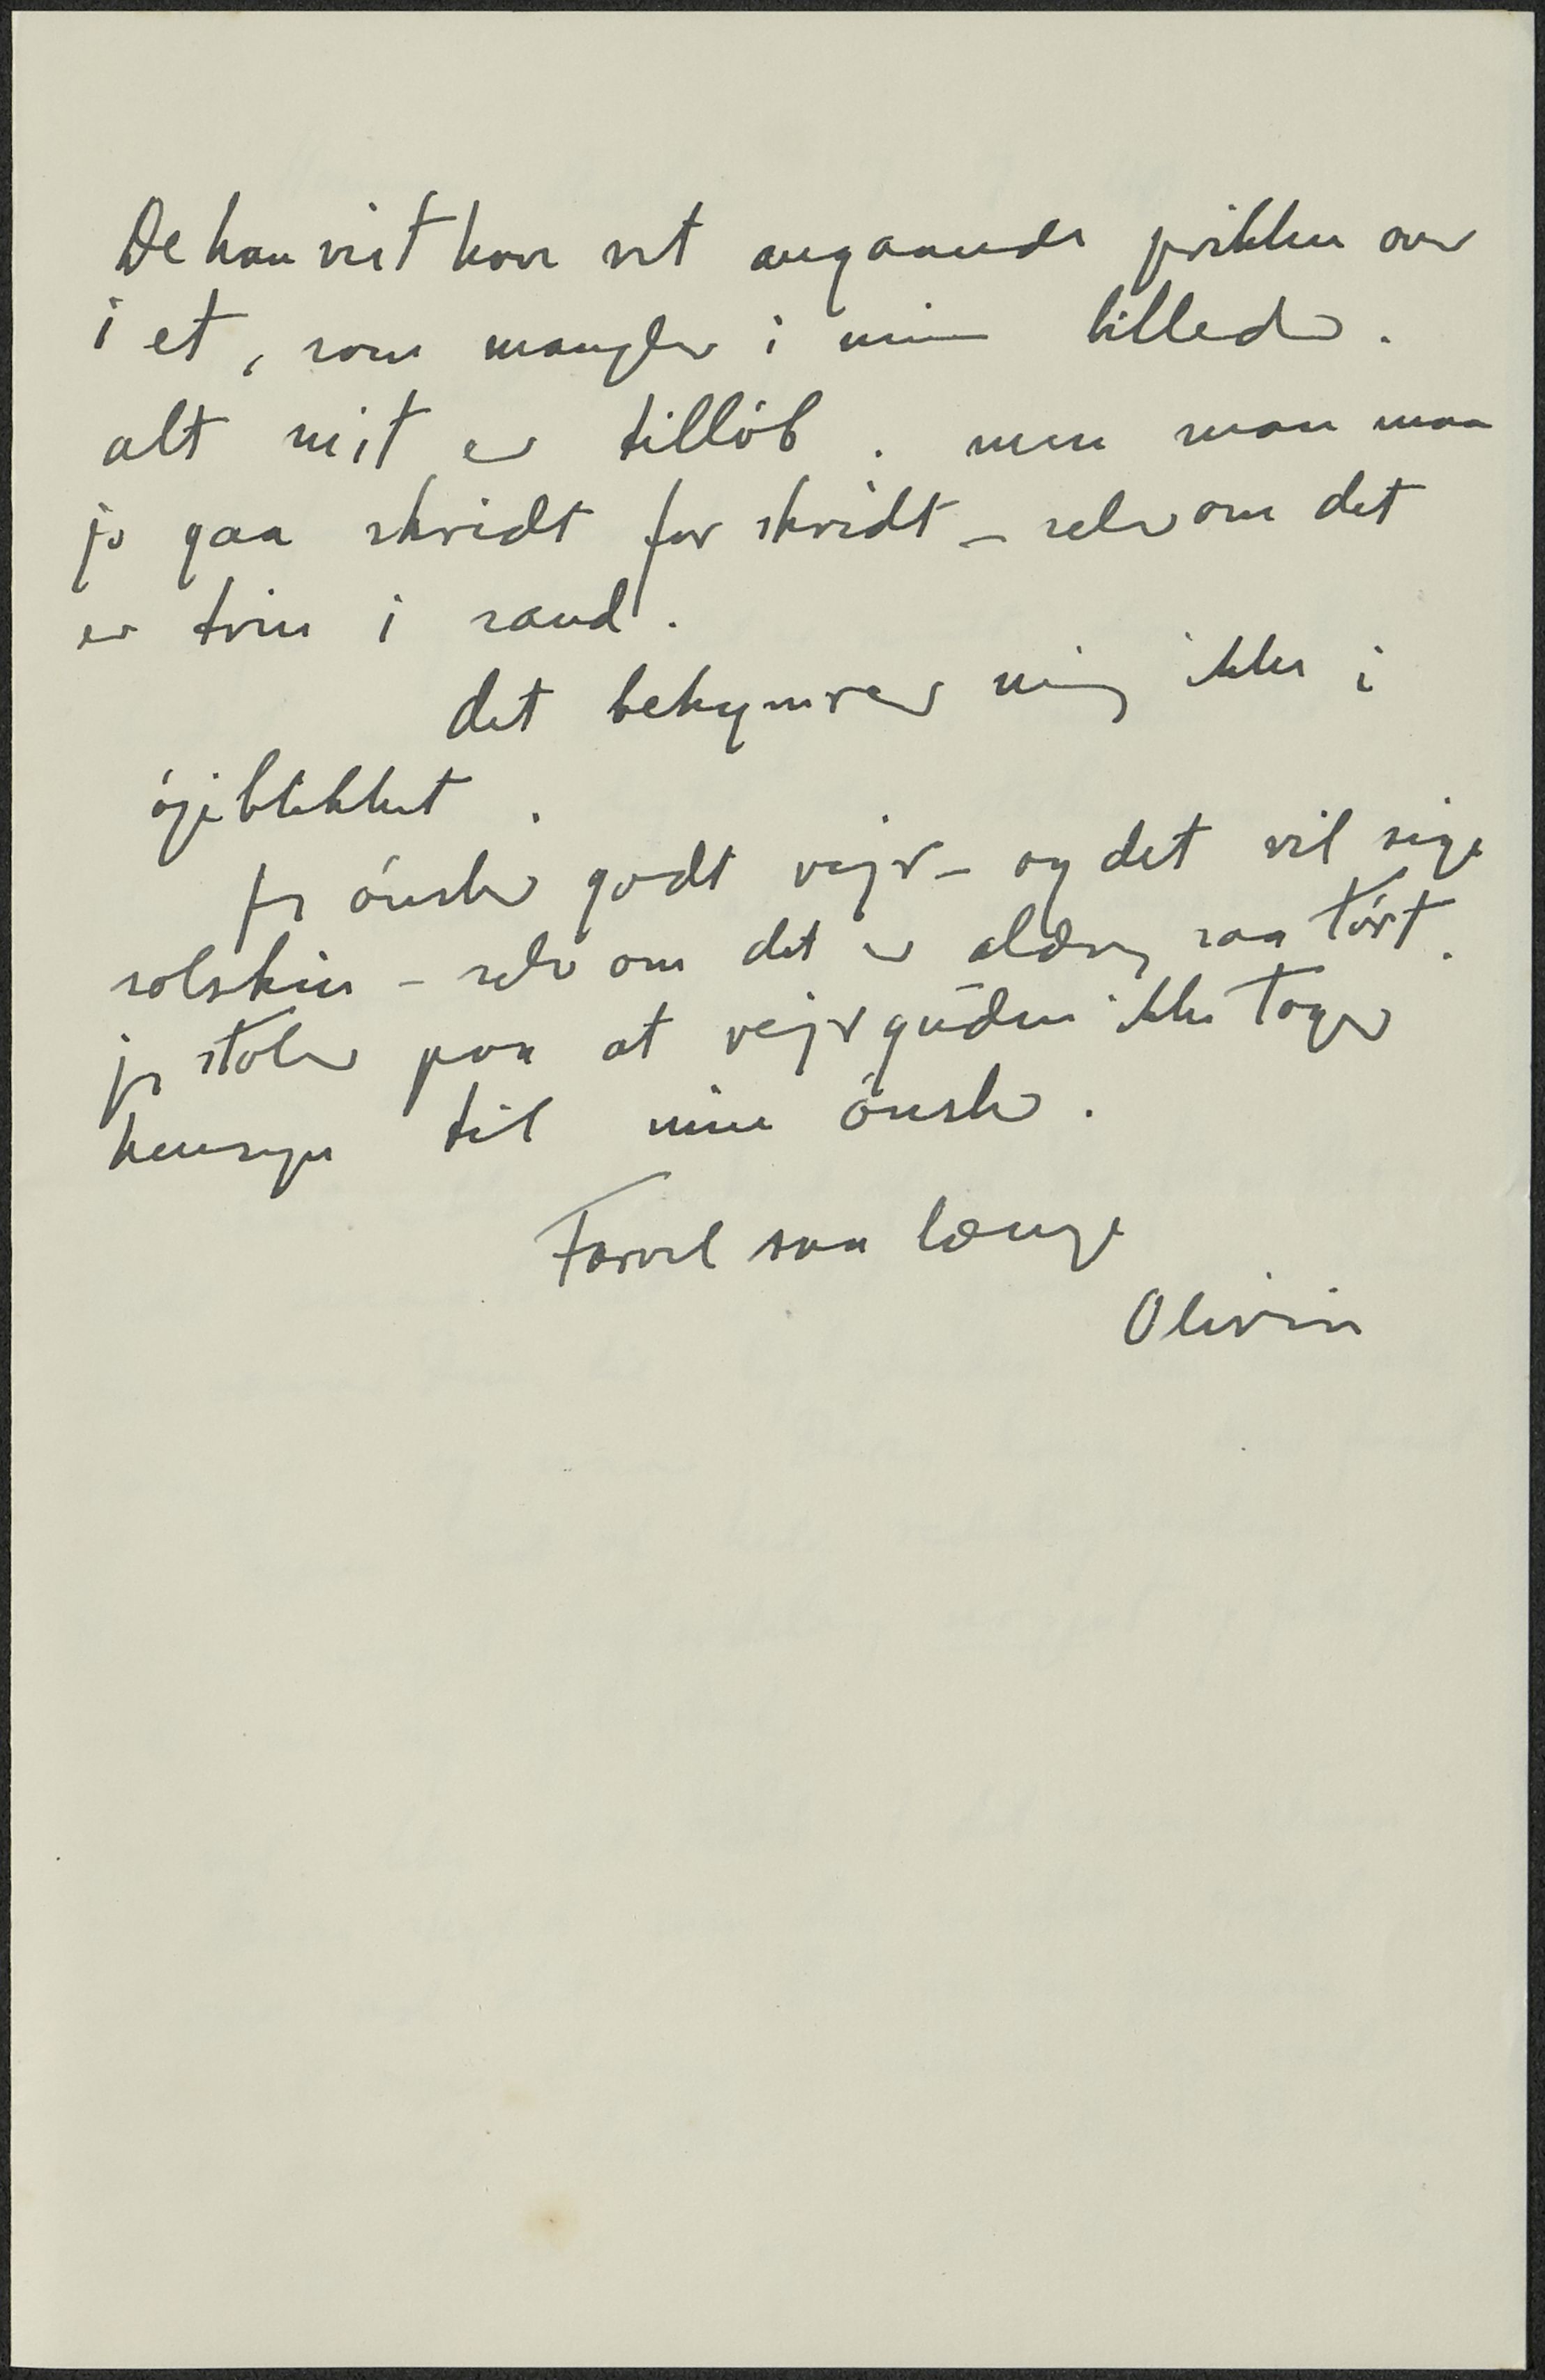 De kan vist have ret angaaende prikken over
i et, som mangler i mine billeder.
alt mit er tilløb. men man maa
jo gaa skridt for skridt – selv om det
er trin i sand.
det bekymrer mig ikke i
øjeblikket.
jeg ønsker godt vejr – og det vil sige
solskin – selv om det er aldrig saa tørt.
jeg stoler paa at vejrguden ikke tager
hensyn til mine ønsker.
Farvel saa længe
Olivia